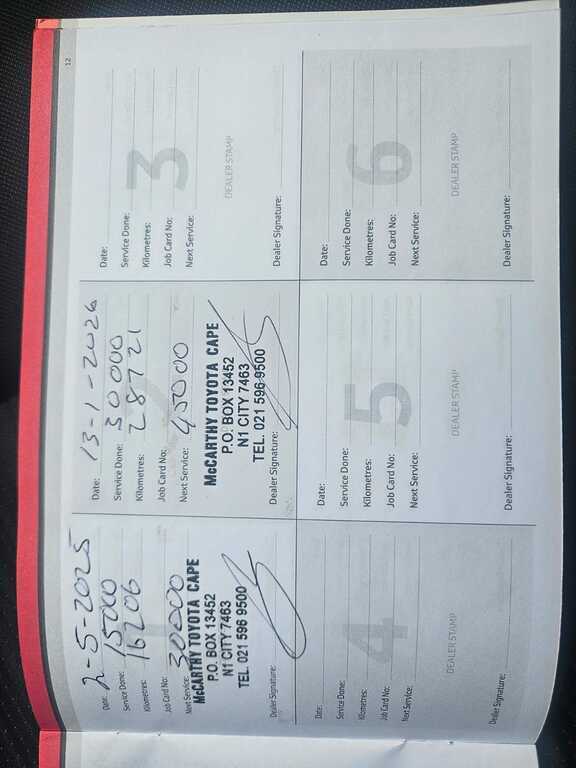 Date: 2-5-2025
Service Done: 15000
Kilometres: 16206
Job Card No:
Next Service: 30000
McCARTHY TOYOTA CAPE
P.O. BOX 13452
N1 CITY 7463
TEL. 021 596 9500
Dealer Signature:
Date: 13-1-2026
Service Done: 30000
Kilometres: 28721
Job Card No:
Next Service: 45000
McCARTHY TOYOTA CAPE
P.O. BOX 13452
N1 CITY 7463
TEL. 021 596 9500
Dealer Signature:
3
Date:
Service Done:
Kilometres:
Job Card No:
Next Service:
DEALER STAMP
Dealer Signature:
4
Date:
Service Done:
Kilometres:
Job Card No:
Next Service:
DEALER STAMP
Dealer Signature:
5
Date:
Service Done:
Kilometres:
Job Card No:
Next Service:
DEALER STAMP
Dealer Signature:
6
Date:
Service Done:
Kilometres:
Job Card No:
Next Service:
DEALER STAMP
Dealer Signature:
12